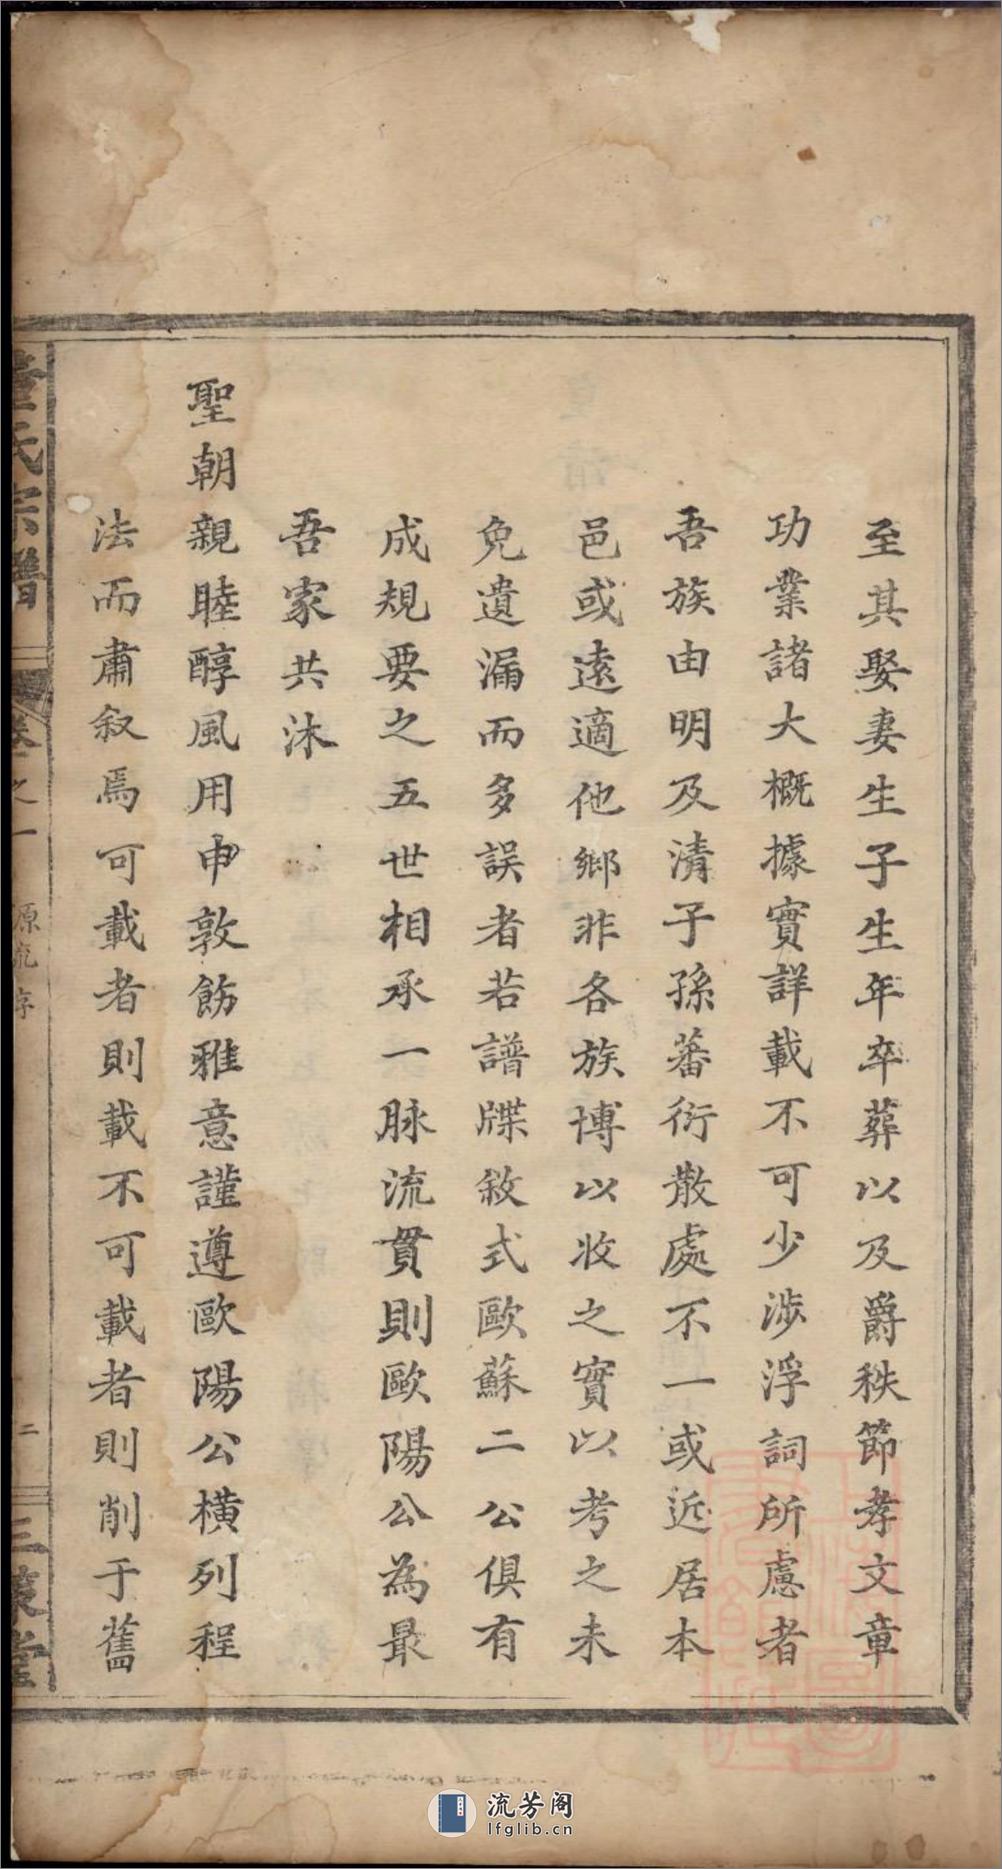 至其娶妻生子生年卒葬以及爵秩節孝文章
功業諸大概據實詳載不可少涉浮詞所慮者
吾族由明及清子孫蕃衍散處不一或近居本
邑或遠適他鄉非各族博以收之實以考之未
免遺漏而多誤者若譜牒敘式歐蘇二公俱有
成規要之五世相承一脉流貫則歐陽公為最
吾家共沐
聖朝親睦醇風用申敦飭雅意謹遵歐陽公橫列程
法而肅叙焉可載者則載不可載者則削于舊
氏宗譜
卷之一
源流序
二
三策堂
流芳阁
lfglib.cn